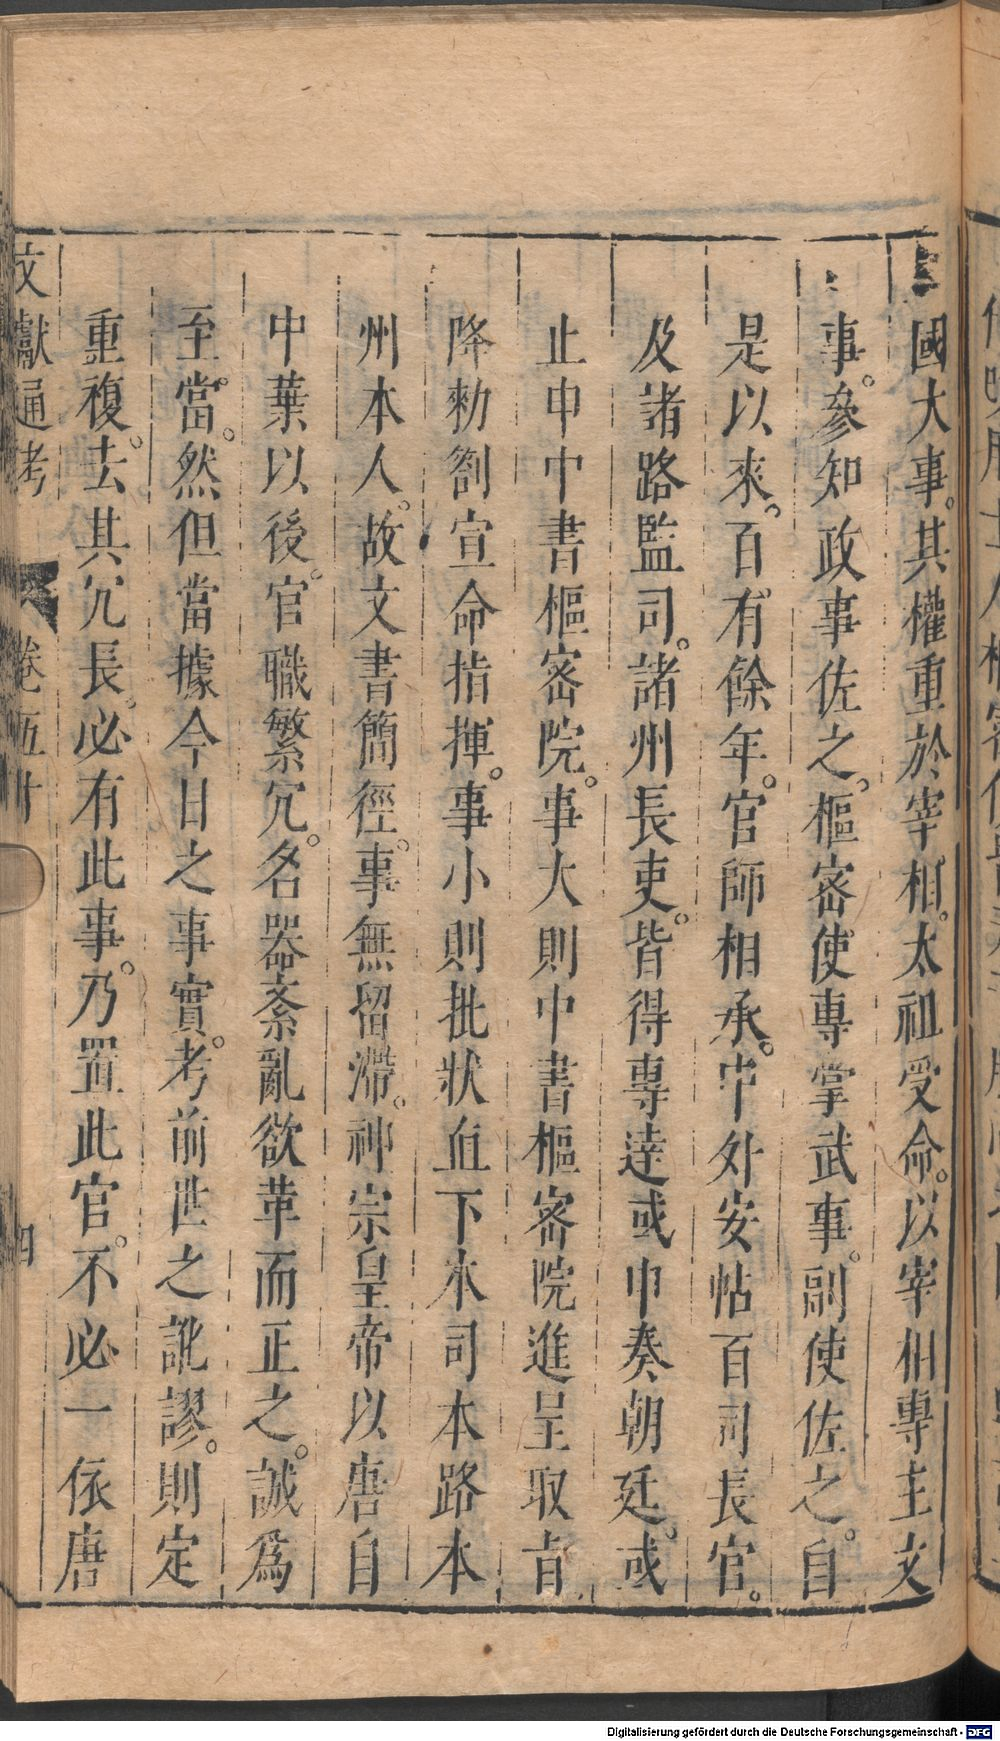 國大事。其權重於宰相。太祖受命。以宰相專主文
事。參知政事佐之。樞密使專掌武事。副使佐之。自
是以來。百有餘年。官師相承。中外安帖百司長官。
及諸路監司。諸州長吏。皆得專達或申奏朝廷。或
止申中書樞密院。事大則中書樞密院進呈取旨
降勅劄宣命指揮。事小則批狀直下本司本路本
州本人。故文書簡徑。事無留滯。神宗皇帝以唐自
中葉以後。官職繁冗。名器紊亂欲革而正之。誠爲
至當。然但當據今日之事實。考前世之訛謬。則定
重複。去其冗長。必有此事。乃置此官。不必一依唐
文獻通考 卷五十 四
Digitalisierung gefördert durch die Deutsche Forschungsgemeinschaft - DFG